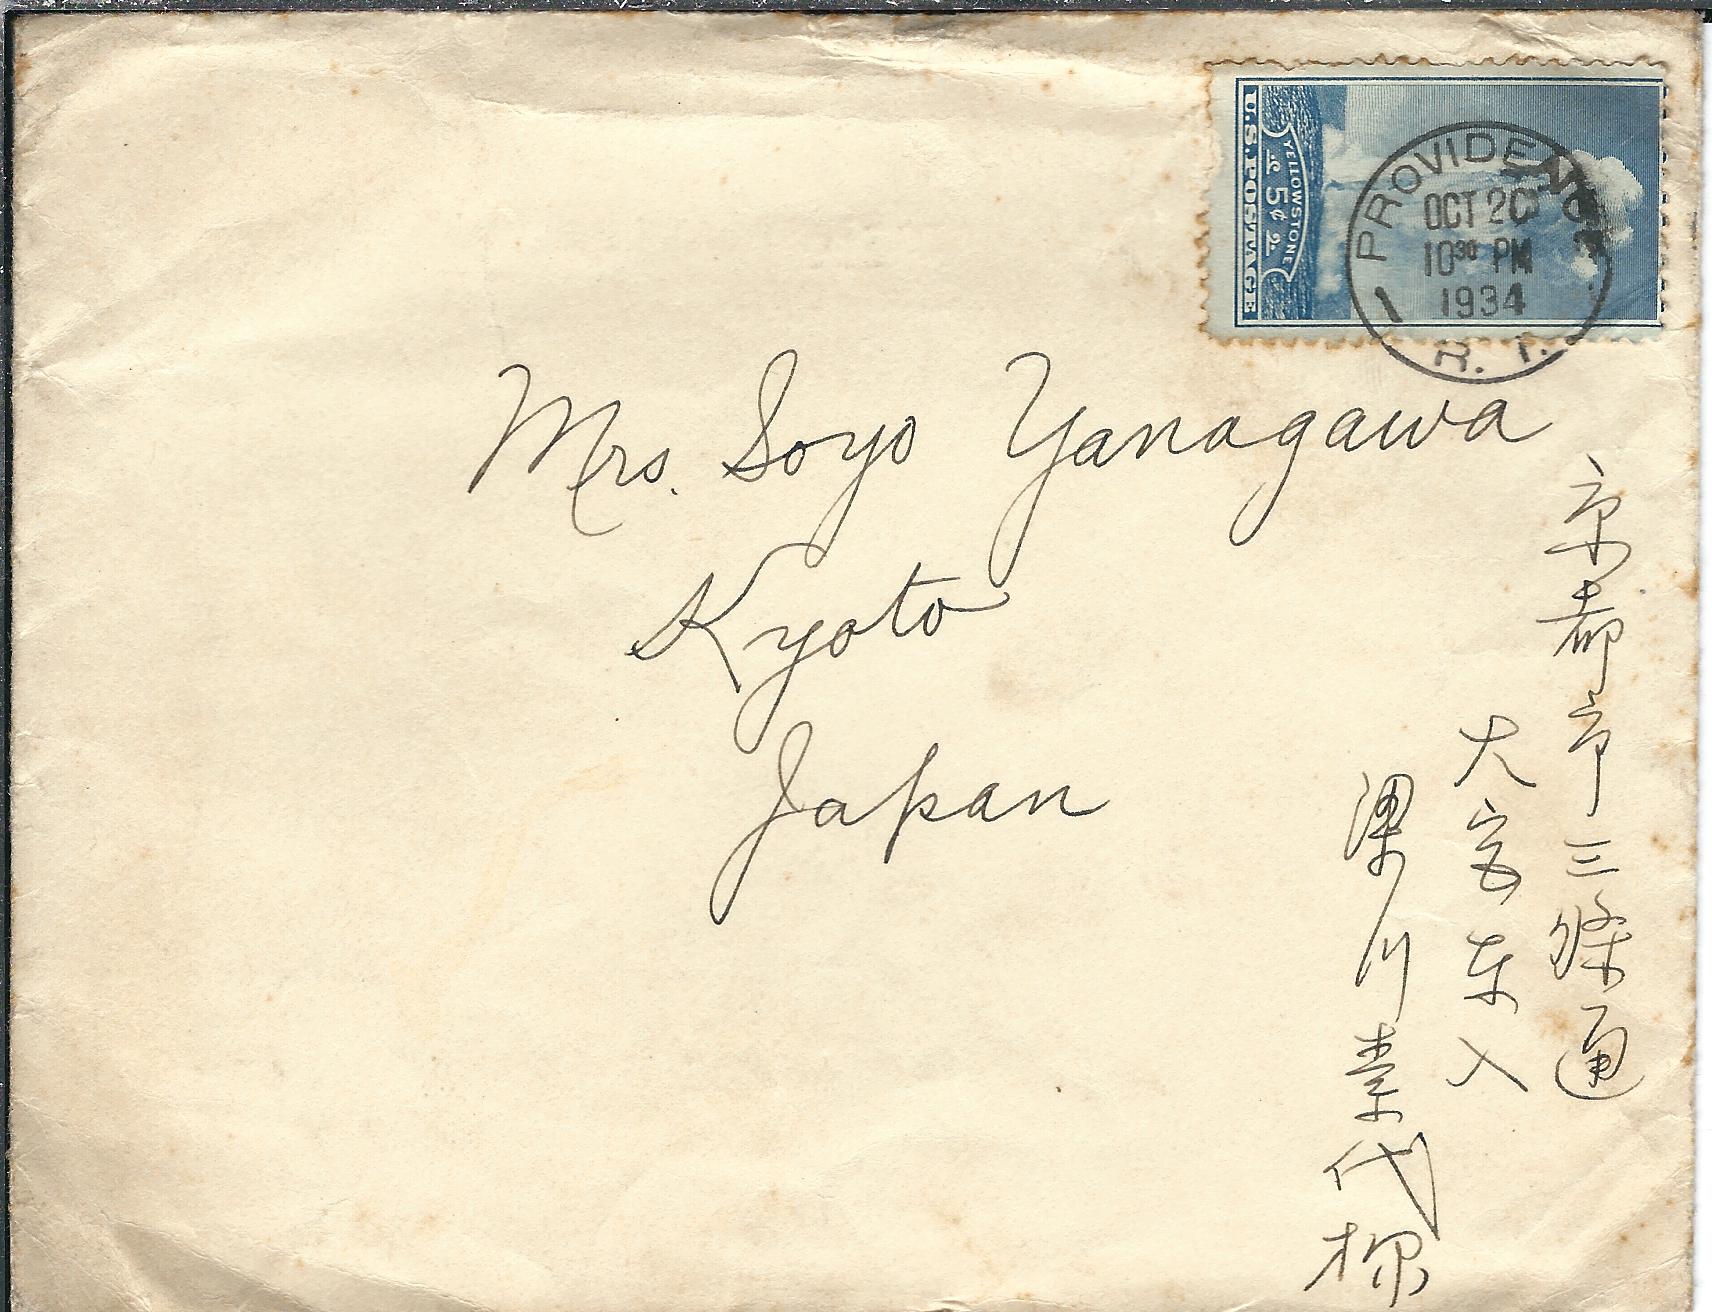 U.S.POSTAGE
YELLOWSTONE
5¢
PROVIDENCE
OCT 20
10 30 PM
1934
1
R. I.
Mrs. Soyo Yanagawa
Kyoto
Japan
京都市三條通
大宮東入
梁川素代様